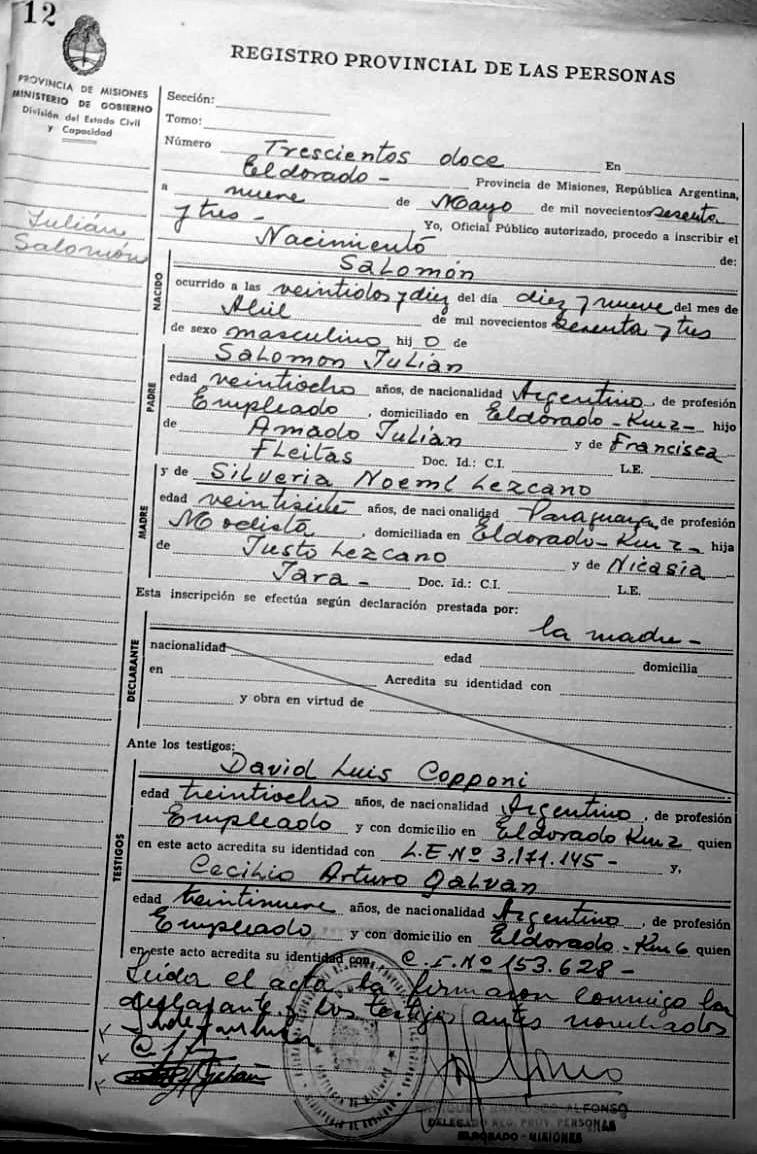 12
REGISTRO PROVINCIAL DE LAS PERSONAS
PROVINCIA DE MISIONES
MINISTERIO DE GOBIERNO
División del Estado Civil
y Capacidad
Julián
Salomón
Sección:
Tomo:
Número Trescientos doce En
Eldorado - Provincia de Misiones, República Argentina,
a nueve de Mayo de mil novecientos sesenta
y tres - Yo, Oficial Público autorizado, procedo a inscribir el
Nacimiento de:
NACIDO
Salomón
ocurrido a las veintidos y diez del día diez y nueve del mes de
Abril de mil novecientos sesenta y tres
de sexo masculino hij o de
PADRE
Salomon Julián
edad veintiocho años, de nacionalidad Argentino, de profesión
Empleado, domiciliado en Eldorado - Km 2 - hijo
de Amado Julián y de Francisca
Fleitas Doc. Id.: C.I. L.E.
MADRE
y de Silveria Noemí Lezcano
edad veintisiete años, de nacionalidad Paraguaya, de profesión
Modista, domiciliada en Eldorado - Km 2 - hija
de Justo Lezcano y de Nicasia
Jara - Doc. Id.: C.I. L.E.
Esta inscripción se efectúa según declaración prestada por:
la madre -
DECLARANTE
nacionalidad edad domicilia
en Acredita su identidad con
y obra en virtud de
Ante los testigos:
TESTIGOS
David Luis Copponi
edad treintiocho años, de nacionalidad Argentino, de profesión
Empleado y con domicilio en Eldorado Km 2 quien
en este acto acredita su identidad con L.E. Nº 3.171.145 - y,
Cecilio Arturo Galvan
edad treintinueve años, de nacionalidad Argentino, de profesión
Empleado y con domicilio en Eldorado - Km 6 quien
en este acto acredita su identidad con C.I. Nº 153.628 -
Leída el acta la firmaron conmigo la
declarante y los testigos antes nombrados
ALFONSO
DELEGADO REG. PROV. PERSONAS
ELDORADO - MISIONES